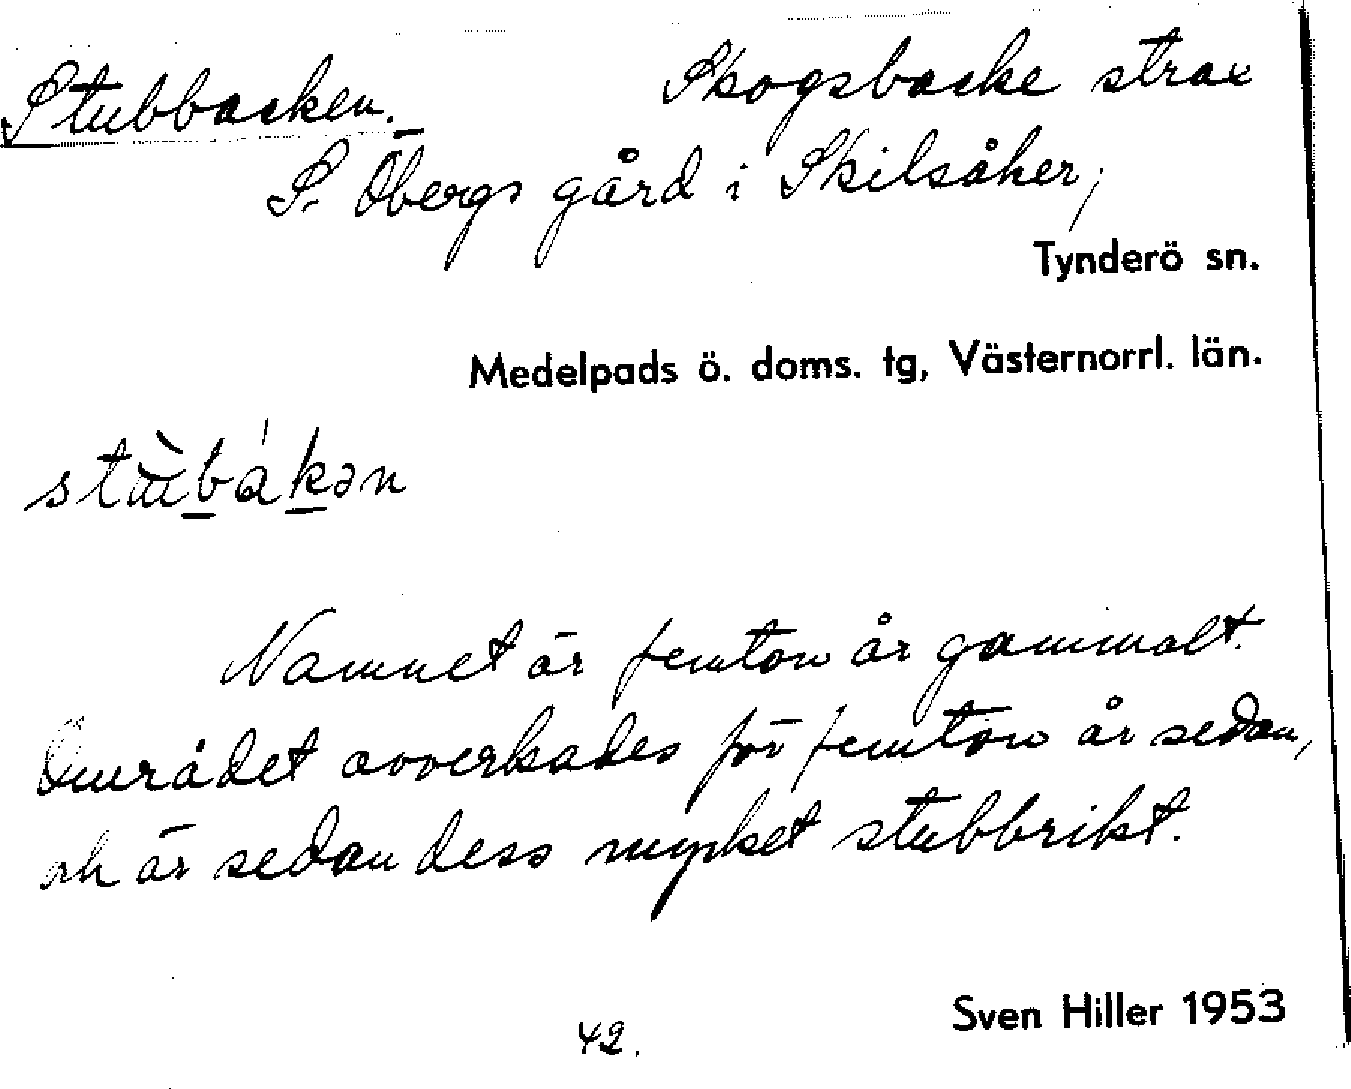 Stubbacken. Skogsbacke strax
S. Öbergs gård i Skilsåker,
Tynderö sn.
Medelpads ö. doms. tg, Västernorrl. län.
Namnet är femton år gammalt.
Området avverkades för femton år sedan,
och är sedan dess mycket stubbrikt.
42.
Sven Hiller 1953